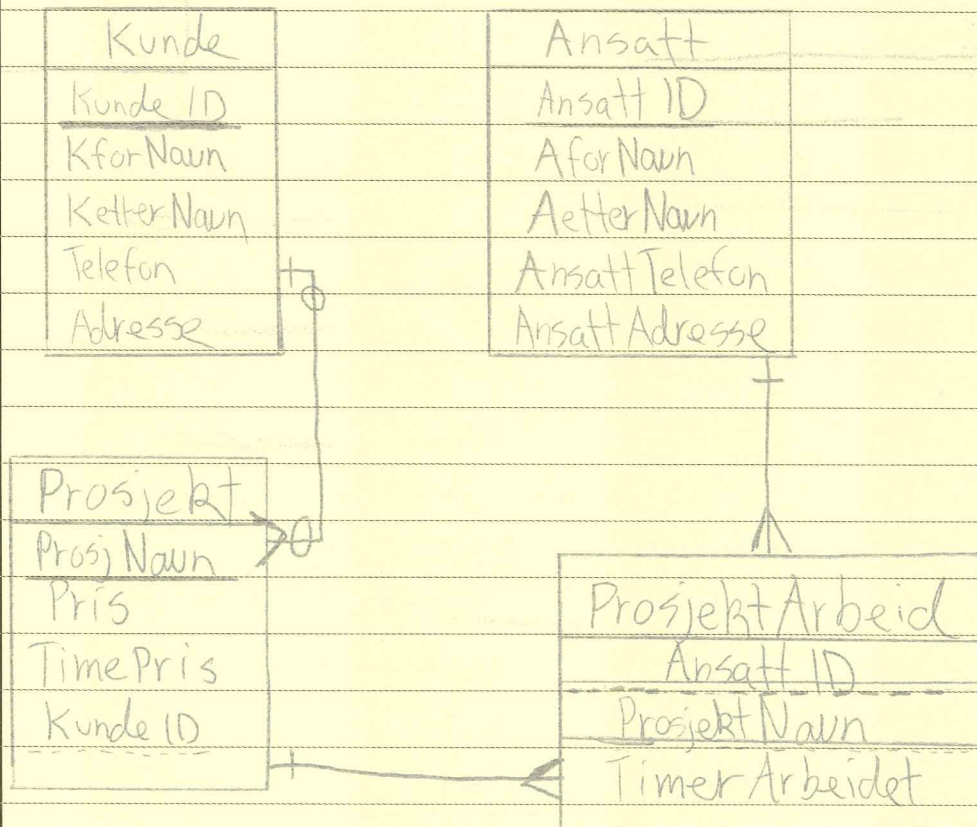 Kunde
Kunde ID
KforNavn
KetterNavn
Telefon
Adresse
Ansatt
Ansatt ID
AforNavn
AetterNavn
AnsattTelefon
AnsattAdresse
Prosjekt
ProsjNavn
Pris
TimePris
Kunde ID
ProsjektArbeid
Ansatt ID
ProsjektNavn
TimerArbeidet